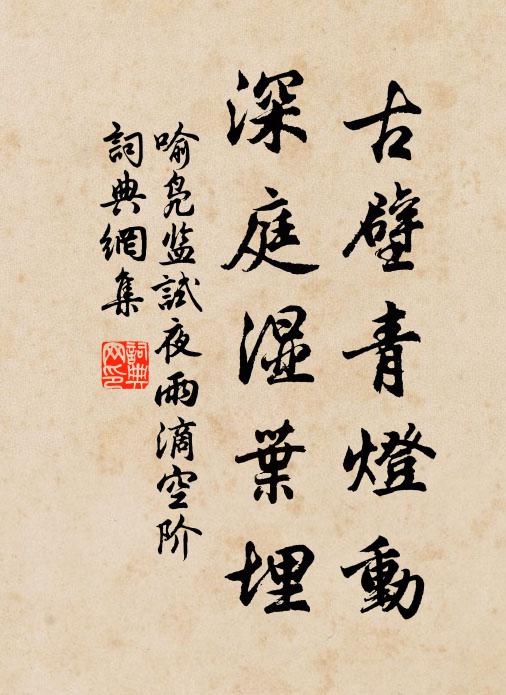 古壁青燈動
深庭濕葉埋
喻凫监試夜雨滴空阶
詞典網集
詞典
网印